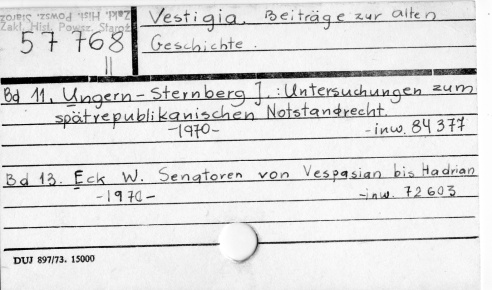 Zakł. Hist. Powsz. Staroż
57768
||
Vestigia. Beiträge zur alten
Geschichte.
Bd 11. Ungern-Sternberg J.: Untersuchungen zum
spätrepublikanischen Notstandrecht.
-1970- -inw. 84377
Bd 13. Eck W. Senatoren von Vespasian bis Hadrian
-1970- -inw. 72603
DUJ 897/73. 15000